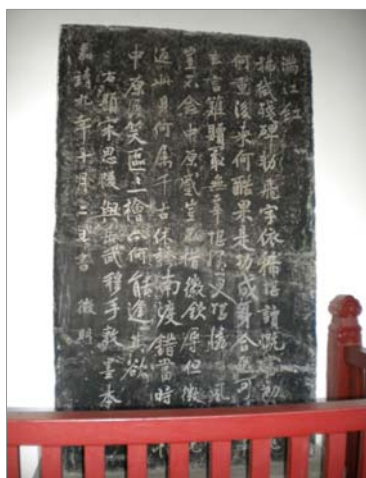 滿江紅
拂拭殘碑勑飛字依稀堪讀慨當初
何重後來何酷果是功成身合死可
去言難贖最無辜堪恨更堪憐風
豈不念中原蹙豈不惜徽欽辱但徽
返此身何屬千古休誇南渡錯當時
中原復笑區區一檜亦何能逢其欲
右題宋思陵與岳武穆手敕墨本
嘉靖九年十月二日書 徵明